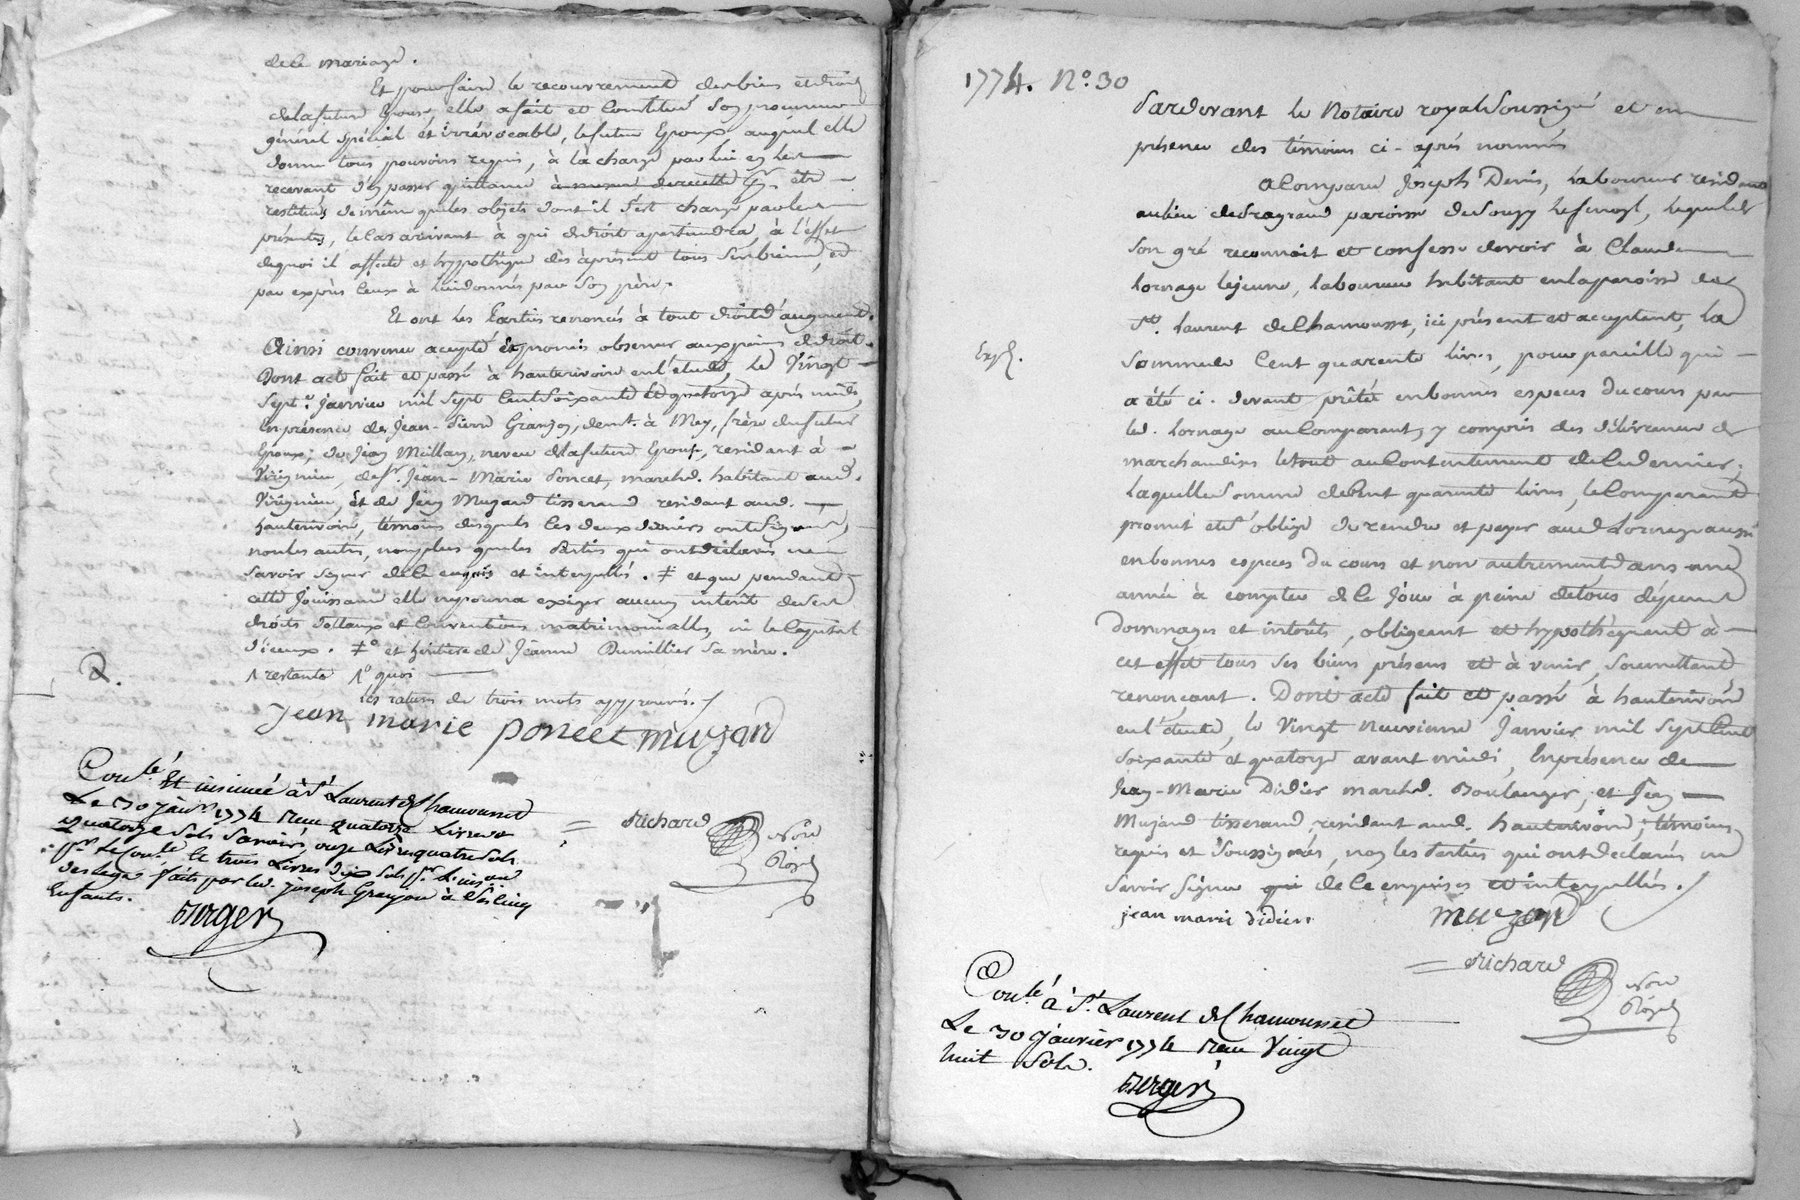 de le mariage.
Et pour faire le recouvrement des biens et droits
de la future Epouse, elle a fait et constitué son procureur
général spécial et irrévocable, le futur Epoux auquel elle
donne tous pouvoirs requis, à la charge par lui en les
recevant d'en passer quittance être
restitués de même que les objets dont il s'est chargé par les
présentes, le cas arrivant à qui de droit apartiendra, à l'effet
de quoi il affecte et hypothèque dès àprésent tous ses biens, et
par exprès ceux à lui donnés par son père.
Et ont les Parties renoncés à tout droit d'augment.
Ainsi convenu accepté et promis observer aux peines de droit.
Dont acte fait et passé à hauterivoire en l'étude, le vingt
sept.e janvier mil sept cent soixante et quatorze après midi,
en présence de Jean-Pierre Granjon, demt. à Mey, frère du futur
Epoux; de Jean Meillan, neveu de la future Epouse, résidant à
Virignieu, de Sr. Jean-Marie Poncet, marchd. habitant aud.
Virignieu, et de Jean Muzard tisserand residant aud.
hauterivoire, témoins desquels les deux derniers ont signé,
non les autres, non plus que les Parties qui ont déclarés ne
savoir signer de ce enquis et interpellés. ‡ et que pendant
cette jouissance elle ne pourra exiger aucun intérêt de ses
droits dottaux et conventions matrimonialles, ni le capital
d'iceux. ‡° et héritière de Jeanne Dumillier sa mère.
1 restante 1° quoi
les ratures de trois mots approuvés./
Jean marie poncet muzard
Conlé. Et insinué à St Laurent de Chamousset
Le 30 janr. 1774 Reçu quatorze Livres
quatorze sols savoir, onze Livres quatre sols
pr. le conle. et trois Livres dix sols pr. l'insion
des legs faits par led. joseph Granjon à ses cinq
Enfants.
Berger
Richard Nore
Royal
1774. No. 30
Pardevant le Notaire royal soussigné et en
présence des témoins ci-après nommés
a Comparu Joseph Denis, laboureur résidant
au lieu de paroisse de Sougy lequel de
son gré reconnoit et confesse devoir à Claude
Lornage lejeune, laboureur habitant en la paroisse de
St. Laurent de Chamousset, ici présent et acceptant, la
somme de Cent quarente livres, pour pareille qui
a été ci-devant prêtée en bonnes especes du cours par
led. Lornage au Comparant, y compris des délivrances de
marchandises le tout au contentement de ce dernier;
Laquelle somme de Cent quarente livres, le Comparant
promet et s'oblige de rendre et payer aud Lornage aussi
en bonnes especes du cours et non autrement dans une
année à compter de ce jour à peine de tous dépens
dommages et intérêts, obligeant et hypothéquant à
cet effet tous ses biens présens et à venir, soumettant,
renonçant. Dont acte fait et passé à hauterivoire
en l'étude, le vingt neuvieme janvier mil sept Cent
soixante et quatorze avant midi, en présence de
Jean-Marie Didier marchd. Boulanger, et Jean
Muzard tisserand, résidant aud. hauterivoire, témoins
requis et soussignés, non les Parties qui ont déclarés ne
savoir signer de ce enquises et interpellées./
jean marie didier muzard
Richard Nore
Royal
Conlé. à St. Laurent de Chamousset
Le 30 janvier 1774 Reçu Vingt
huit sols.
Berger